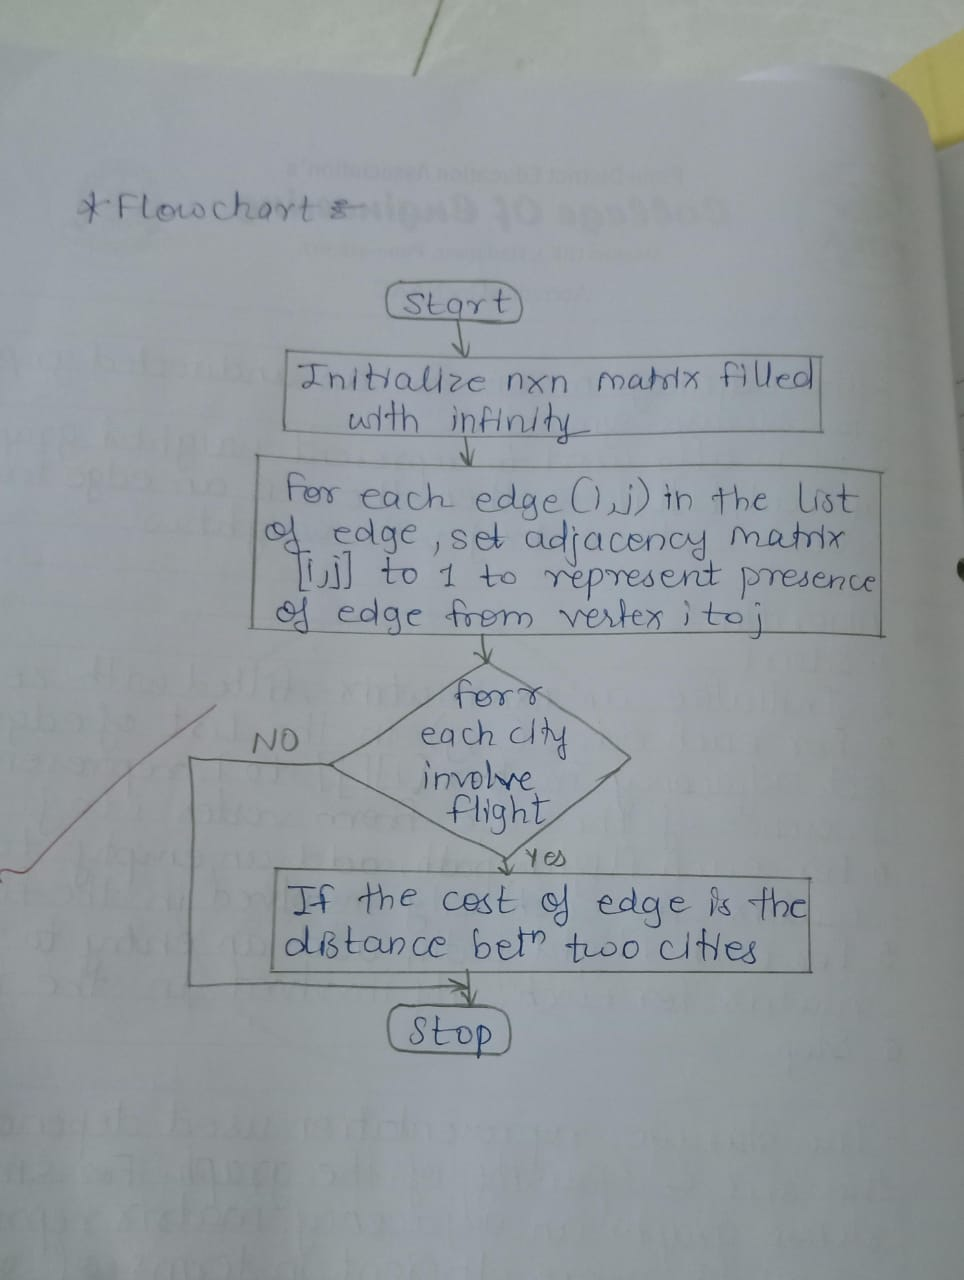 * Flowchart :-
Start
Initialize nxn matrix filled
with infinity
For each edge (i,j) in the list
of edge, set adjacency matrix
[i,j] to 1 to represent presence
of edge from vertex i to j
for
each city
involve
flight
NO
Yes
If the cost of edge is the
distance betn two cities
Stop